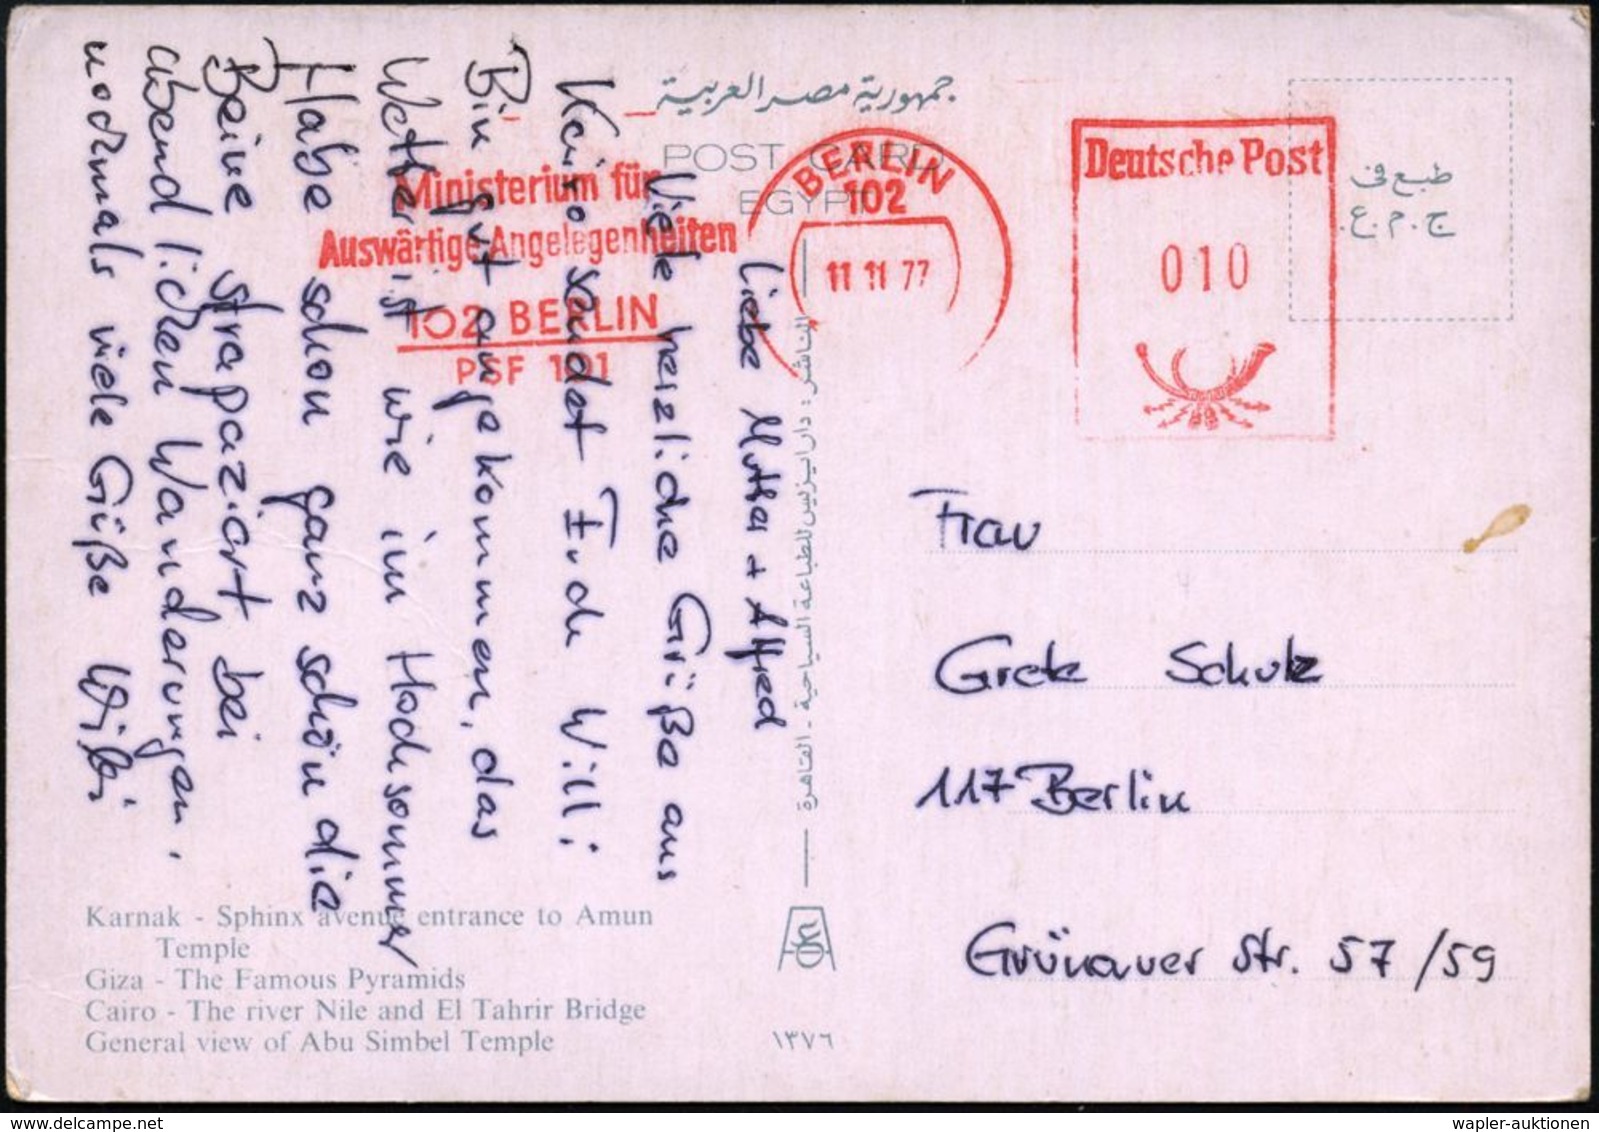 جمهورية مصر العربية
POST CARD
EGYPT
Ministerium für
Auswärtige Angelegenheiten
102 BERLIN
PSF 101
BERLIN
102
11 11 77
Deutsche Post
010
طبع فى
ج.م.ع.
Liebe Mutter + Alfred
Viele herzliche Grüße aus
Kairo sendet Euch Willi
Bin gut angekommen, das
Wetter ist wie im Hochsommer
Habe schon ganz schön die
Beine strapaziert bei
abendlichen Wanderungen.
nochmals viele Grüße Willi
الناشر: دار ايزيس للطباعة السياحية - القاهرة
Frau
Grete Schulz
117 Berlin
Grünauer Str. 57/59
Karnak - Sphinx avenue entrance to Amun
Temple
Giza - The Famous Pyramids
Cairo - The river Nile and El Tahrir Bridge
General view of Abu Simbel Temple
١٣٧٦
wapler-auktionen